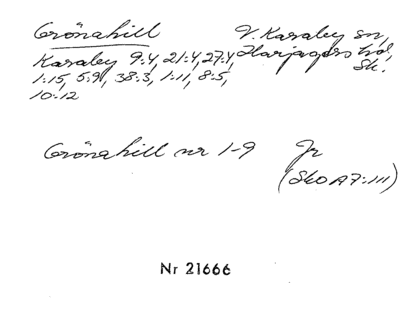 Grönahill V. Karaby sn,
Karaby 9:4, 21:4, 27:4, Harjagers hd,
1:15, 5:9, 38:3, 1:11, 8:5, Sk.
10:12
Grönahill nr 1-9 Jr
(Sko A7:111)
Nr 21666